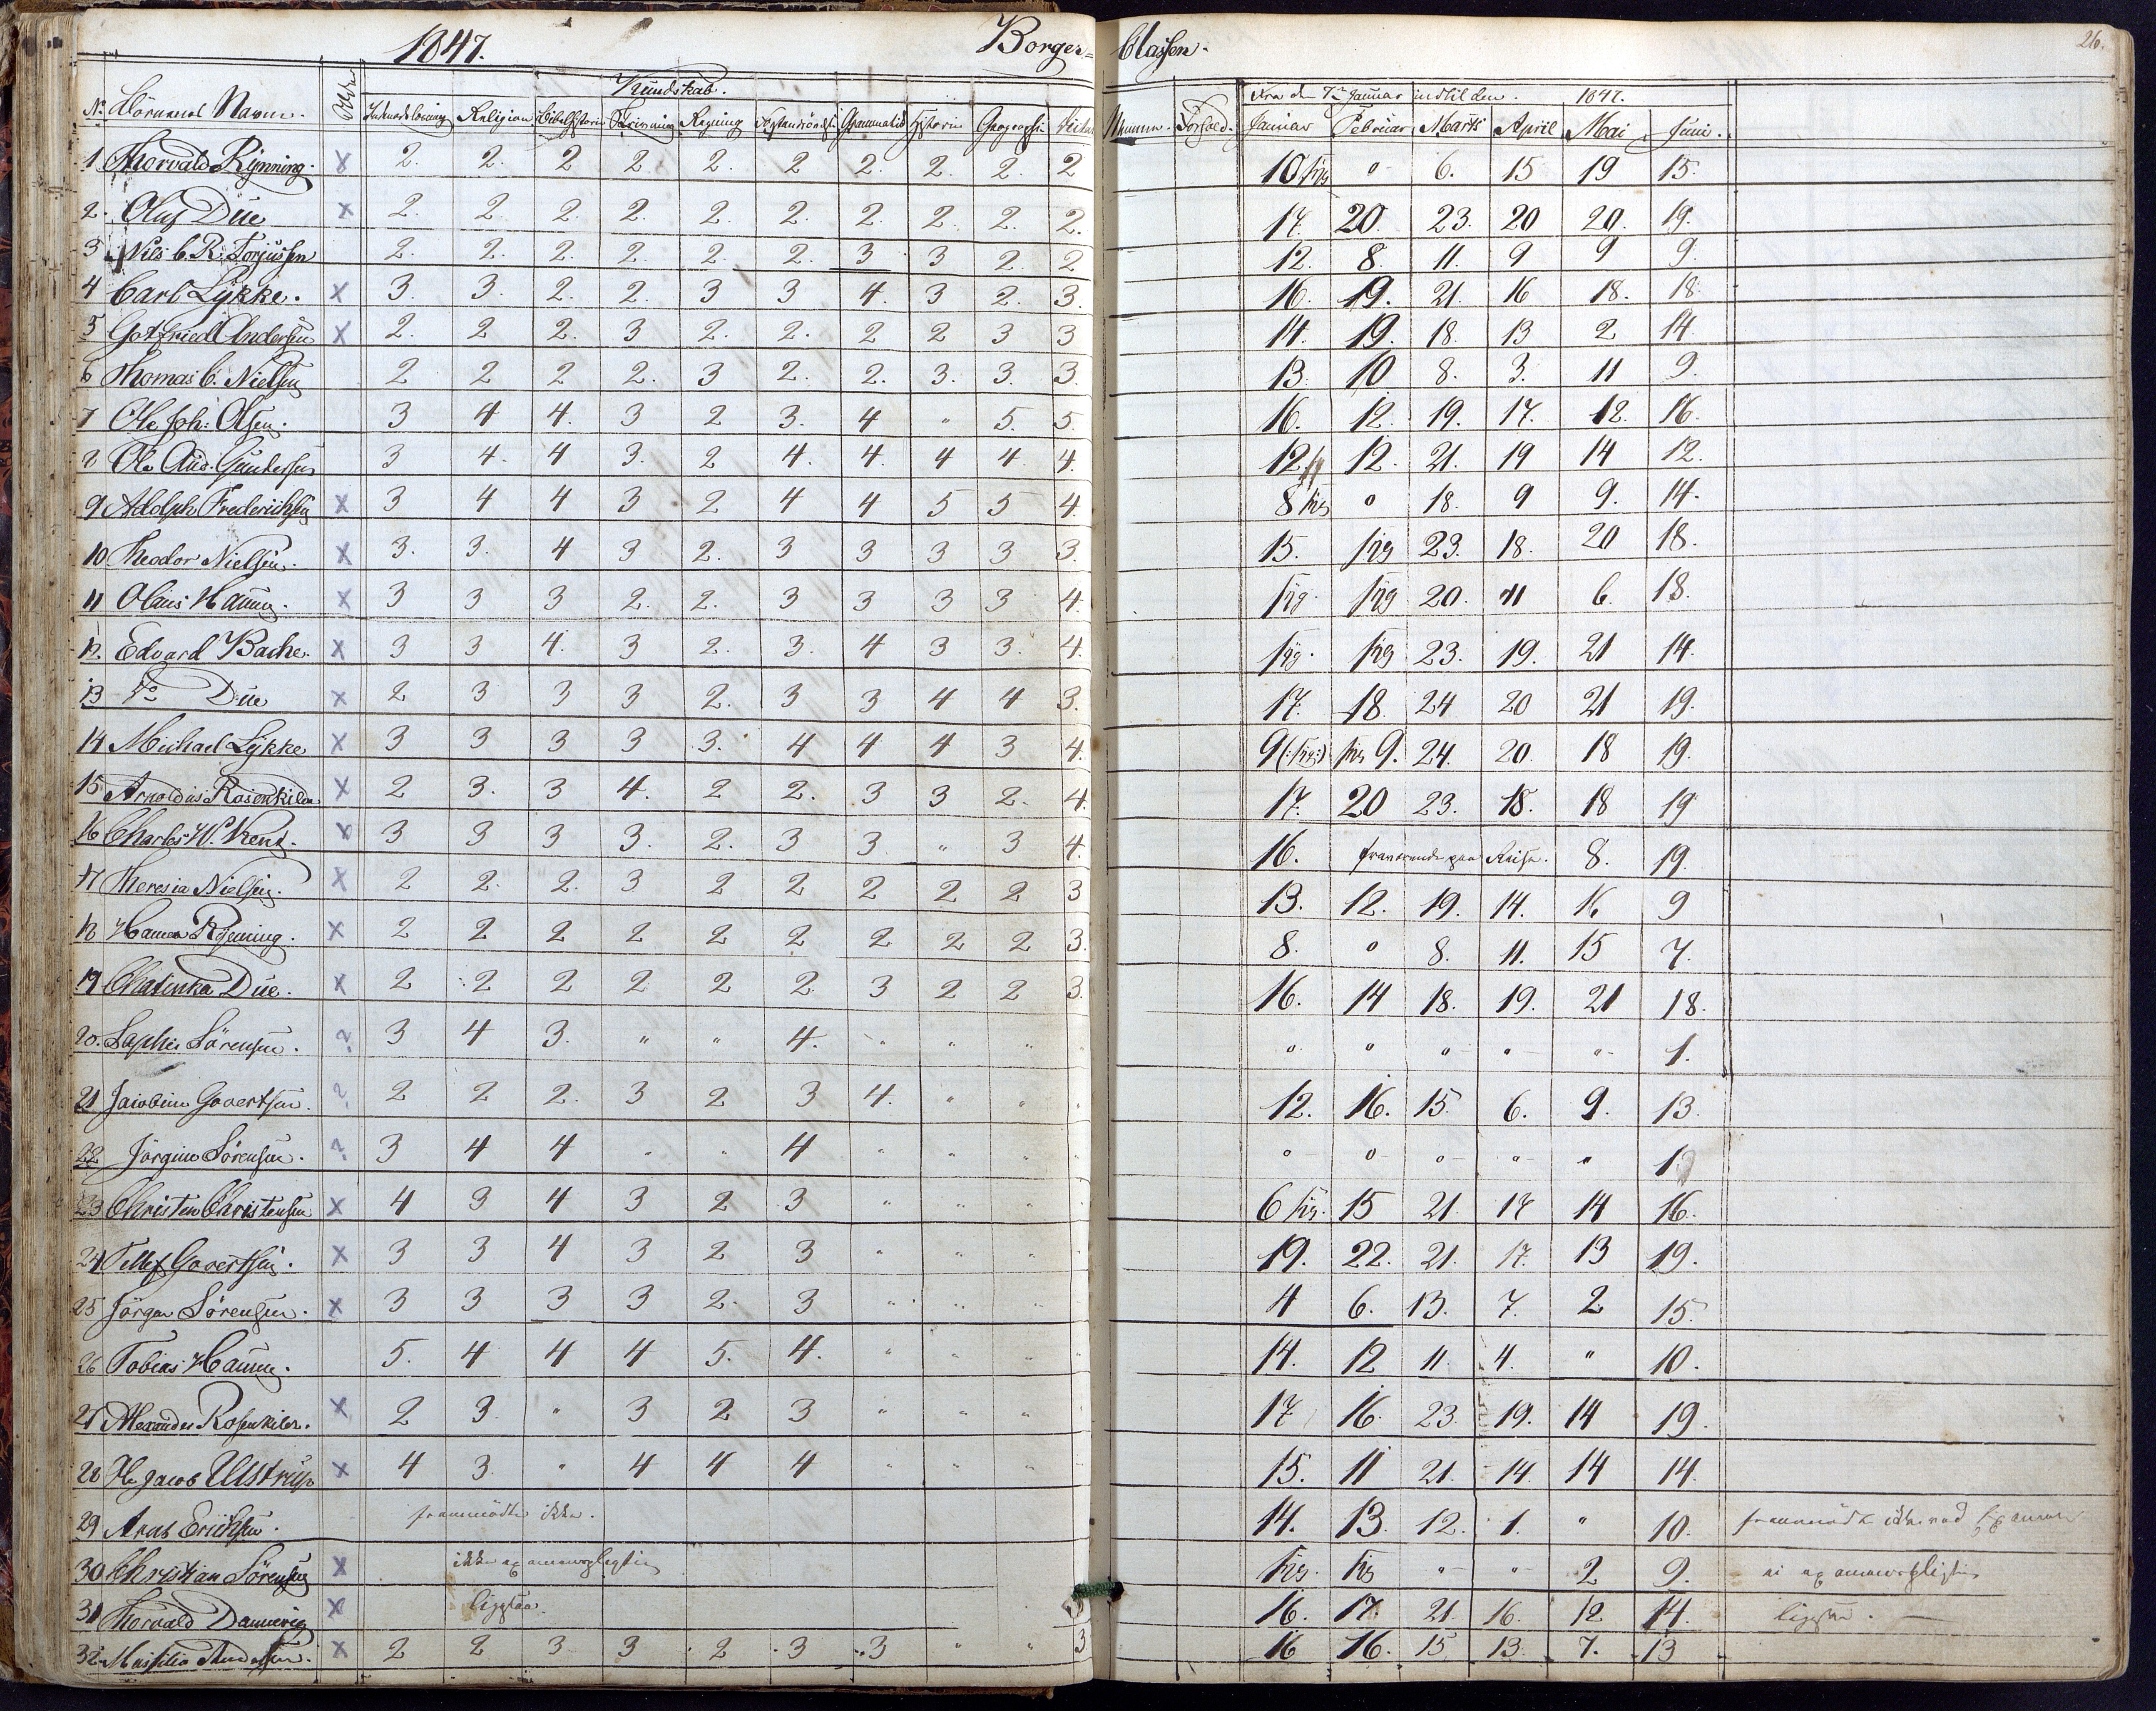 1847. Borger= Classen. 26.
Kundskab. Fra den 7de Januar indtil den 1847.
No Börnenes Navn. Religion Bibelhistorie Skrivning Regning Grammatik Historie Geographi Forhold. Januar Februar Marts April Mai Juni.
1 Thorvald Rynning. x 2. 2. 2 2. 2. 2 2. 2. 2. 2 10 " 6. 15 19 15.
2. Oluf Düe x 2. 2. 2. 2. 2. 2. 2. 2. 2. 2. 17. 20. 23. 20 20. 19.
3 Nils C. R. Torjussen 2. 2. 2. 2. 2. 2. 3 3 2. 2 12. 8. 11. 9 9 9.
4 Carl Lykke. x 3. 3. 2. 2. 3 3 4. 3 2. 3. 16. 19. 21. 16 18. 18.
5 Gotfried Andersen x 2. 2 2. 3 2. 2. 2 2 3 3 14. 19. 18. 13 2 14
6 Thomas C. Nielsen 2 2 2 2. 3 2. 2. 3. 3. 3. 13. 10 8. 3. 11 9.
7 Ole Joh: Olsen. 3 4 4. 3 2 3. 4 " 5. 5. 16. 12. 19. 17. 12. 16.
8 Ole Aug. Gundersen 3 4. 4 3. 2 4. 4. 4 4. 4. 12. 12. 21. 19 14 12.
9 Adolph Frederichsen x 3 4 4 3 2 4 4 5 5 4. 8 " 18. 9 9. 14.
10 Theodor Nielsen. x 3. 3. 4 3 2. 3 3 3 3 3. 15. 23. 18. 20 18.
11 Olaus Hansen. x 3 3 3 2. 2. 3 3 3 3 4. 20. 11 6. 18.
12. Edvard Bache. x 3 3 4. 3 2. 3. 4 3 3. 4. 23. 19. 21 14.
13 Do Düe x 2 3 3 3 2. 3 3 4 4 3. 17. 18. 24 20 21 19.
14 Michael Lykke x 3 3 3 3 3. 4 4 4 3 4. 9 9. 24. 20. 18 19.
15 Arnoldus Rosenkilde x 2 3. 3 4. 2 2. 3 3 2. 4. 17. 20 23. 18. 18 19
16 Charles W. Kent. x 3 3 3 3. 2. 3 3. " 3 4. 16. fraværende paa Reise. 8. 19.
17 Theresia Nielsen. x 2 2. 2. 3 2 2 2 2 2 3 13. 12. 19. 14. 16 9
18 Hanna Rynning. x 2 2 2 2 2 2 2 2 2 3. 8. " 8. 11. 15 7.
19 Chatinka Düe. x 2 2 2 2 2 2. 3 2 2 3. 16. 14 18. 19. 21 18.
20. Sophie Sörensen. ? 3 4 3. " " 4. " " " " " " " " 1.
21 Jacobine Govertsen. ? 2 2 2. 3 2 3 4. " " 12. 16. 15. 6. 9. 13.
22 Jörgine Sörensen. ? 3 4 4 " " 4 " " " " " " " " 1.
23 Christen Christensen x 4 3 4 3 2 3 " " " 6 15 21. 17 14 16.
24 Tellef Govertsen. x 3 3 4 3 2 3 " " " 19. 22. 21. 17. 13 19.
25 Jörgen Sörensen. x 3 3 3 3 2. 3 " " " 4 6. 13. 7. 2 15.
26 Tobias Hansen. 5. 4 4 4 5. 4. " " " 14. 12 11. 4. " 10.
27 Alexander Rosenkilde. x 2 3. " 3 2 3 " " " 17 16. 23. 19. 14 19.
28 H. Jacob Ulstrup x 4 3. " 4 4 4 " " " 15. 11 21. 14. 14 14.
29 Erichsen. fremmödte ikke. 14. 13. 12. 1. " 10. fremmödte ikke ved Examen
30 Christian Sörensen x ikke examenspligtig " " 2 9. ei examenspligtig
31 Thorvald Dannevig x ligesaa. 16. 17. 21. 16. 12 14. ligesaa.
32. Andersen. x 2 2 3 3 2 3 3 " " 3 16 16. 15 13. 7. 13